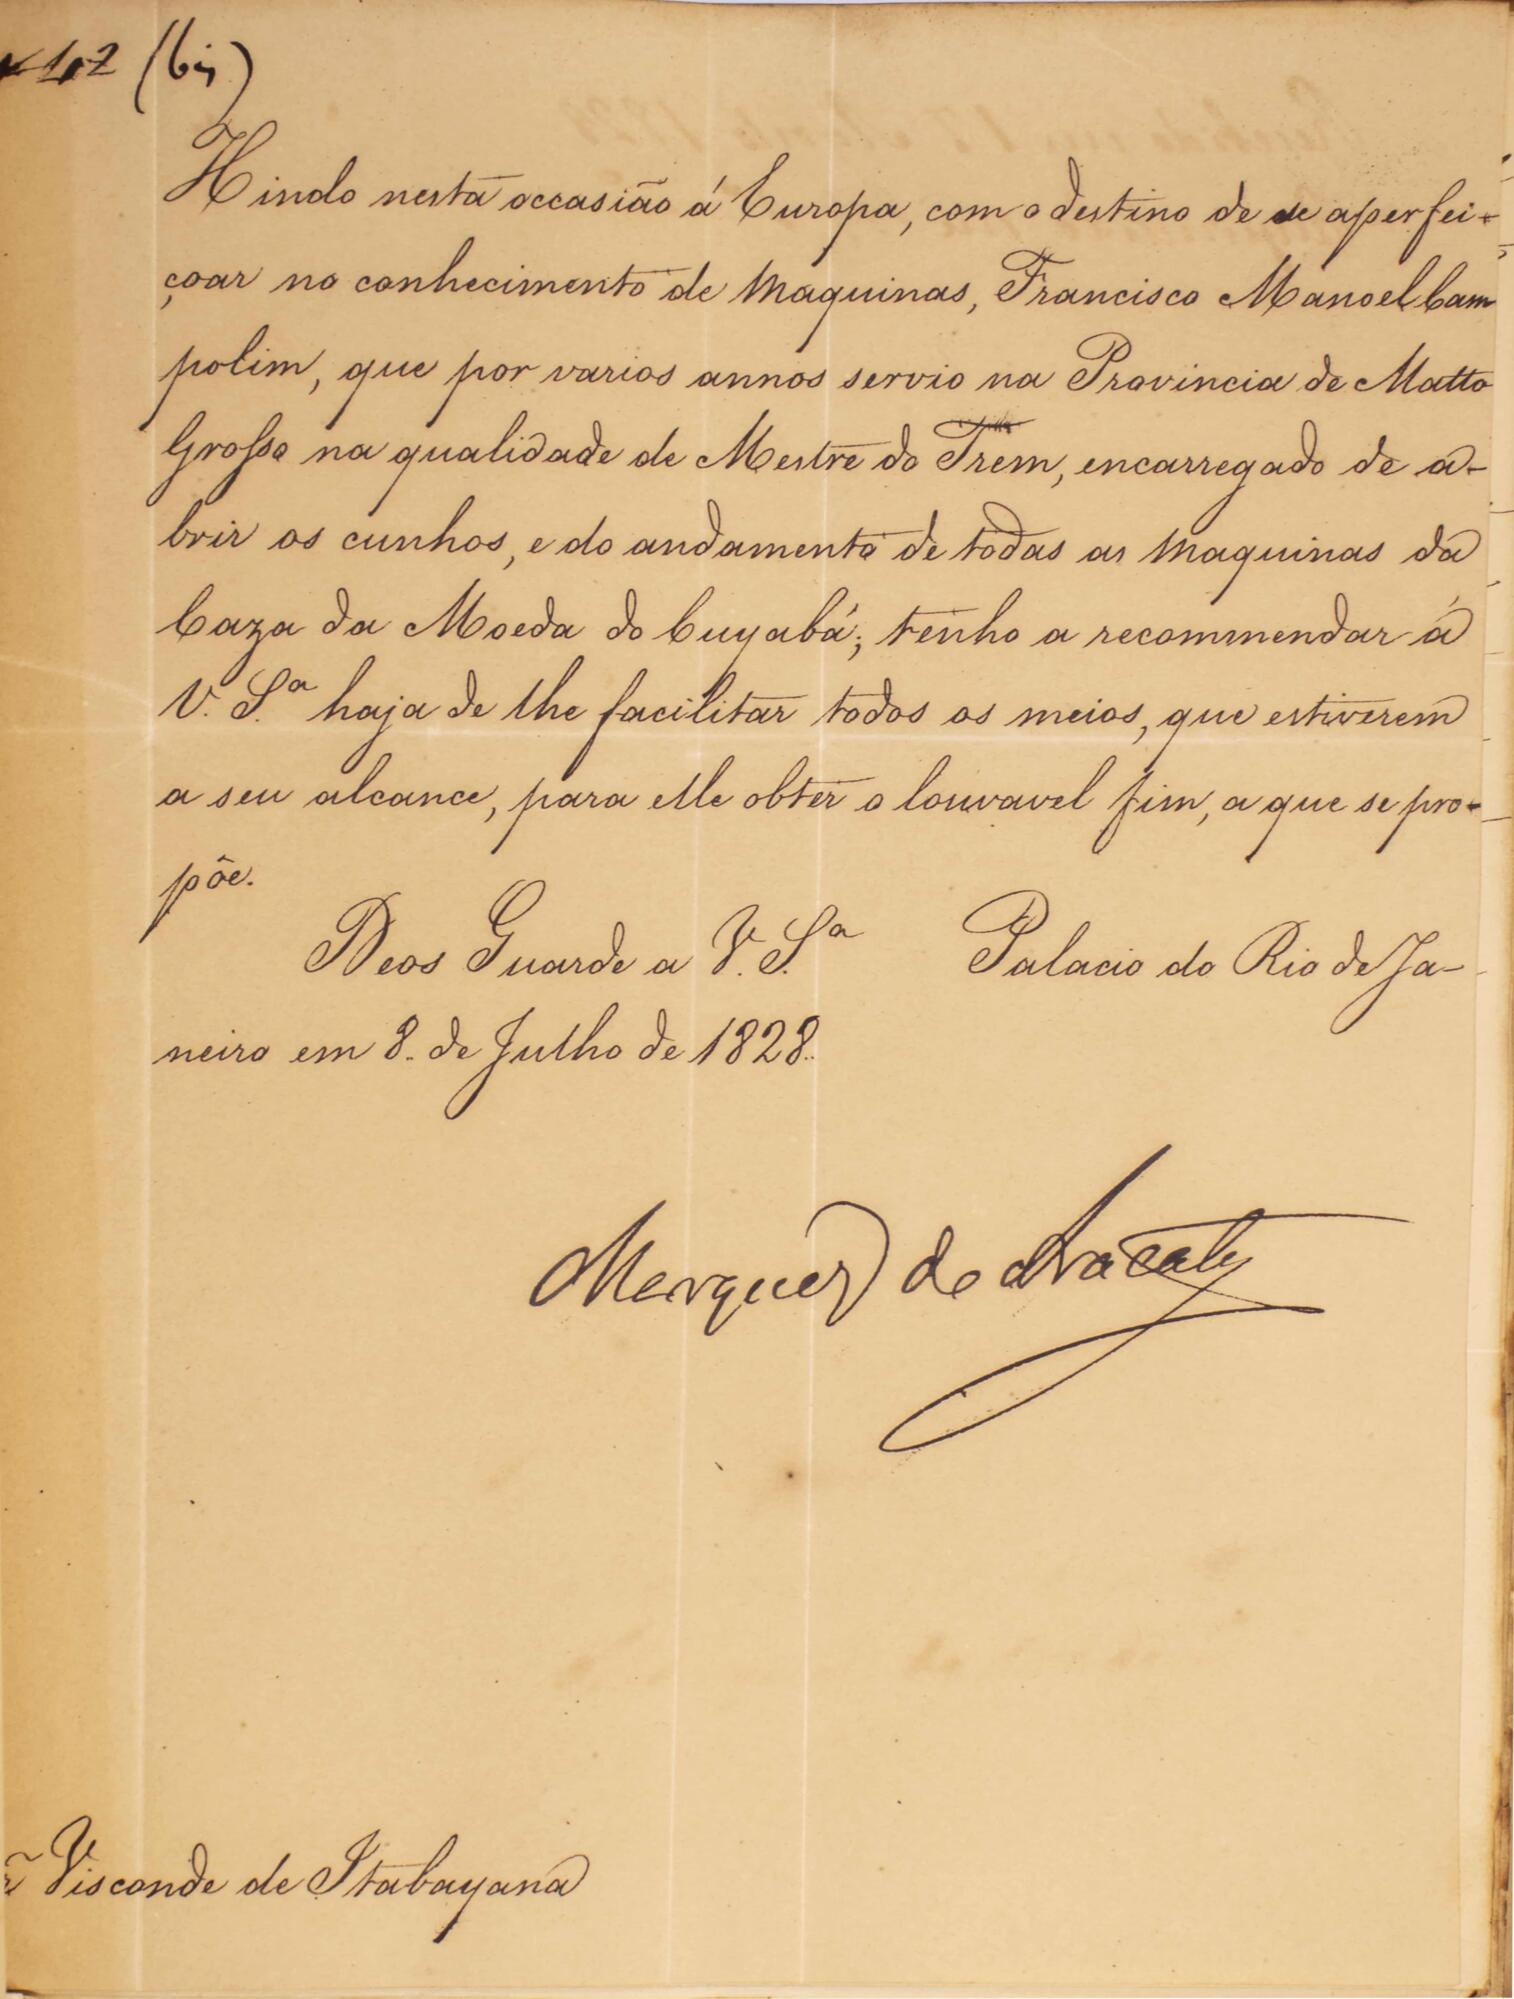 12 (bis)
Hindo nesta occasião á Europa, com o destino de se aperfei-
çoar no conhecimento de Maquinas, Francisco Manoel Cam
polim, que por varios annos servio na Provincia de Matto
Grosso na qualidade de Mestre do Trem, encarregado de a-
brir os cunhos, e do andamento de todas as Maquinas da
Caza da Moeda do Cuyabá; tenho a recommendar á
V. S.ª haja de lhe facilitar todos os meios, que estiverem
a seu alcance, para elle obter o louvavel fim, a que se pro-
põe.
Deos Guarde a V. S.ª Palacio do Rio de Ja-
neiro em 8. de Julho de 1828.
Marquez de Aracaty
Visconde de Itabayana